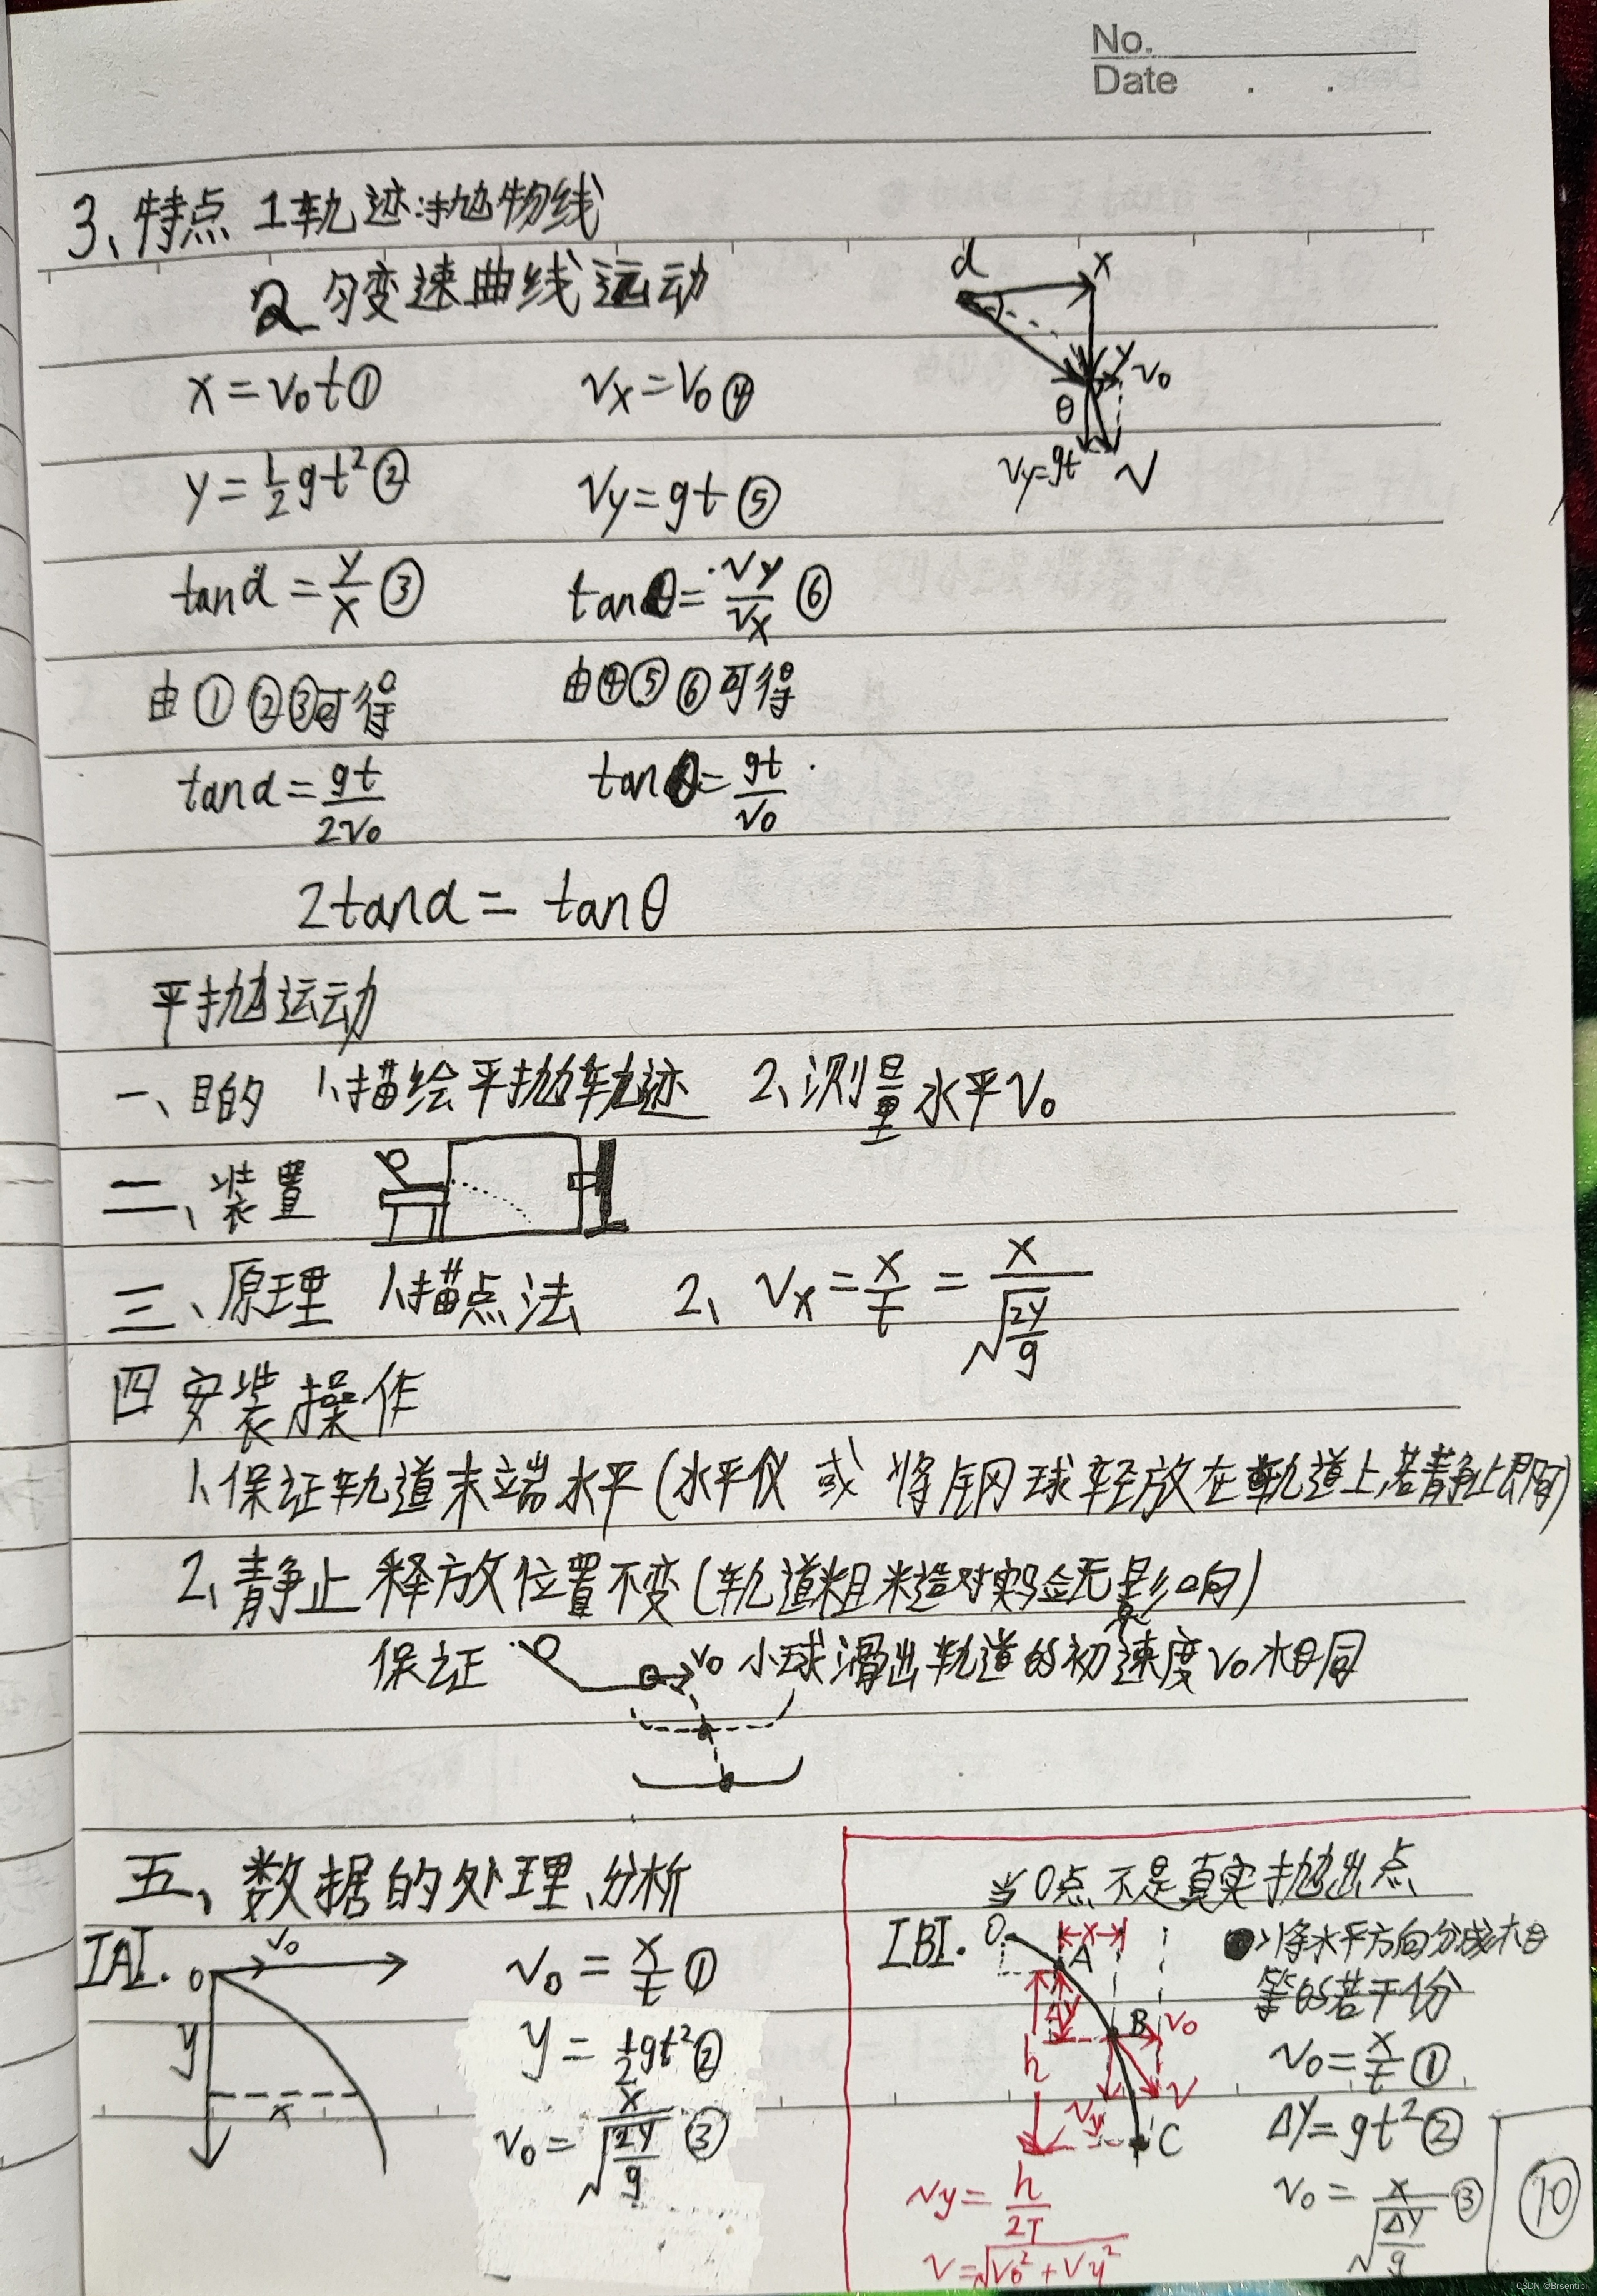 No.
Date . .
3、特点 1轨迹:抛物线
2 匀变速曲线运动
α x
x=v₀t① vx=v₀④
y v₀
θ
vy=gt v
y=½gt²② vy=gt⑤
tanα=y/x③ tanθ=vy/vx⑥
由①②③可得 由④⑤⑥可得
tanα=gt/2v₀ tanθ=gt/v₀
2tanα=tanθ
平抛运动
一、目的 1、描绘平抛轨迹 2、测量水平v₀
二、装置
三、原理 1、描点法 2、vx=x/t=x/√(2y/g)
四 安装操作
1、保证轨道末端水平(水平仪 或 将钢球轻放在轨道上,若静止即可)
2、静止释放位置不变(轨道粗糙对实验无影响)
保证 v₀ 小球滑出轨道的初速度v₀相同
五、数据的处理、分析
IAI. 0 v₀
y
x
v₀=x/t①
y=½gt²②
v₀=x/√(2y/g)③
当0点不是真实抛出点
IBI. 0 x
A
Δy
B v₀
h
v
vy
C
将水平方向分成相
等的若干份
v₀=x/t①
Δy=gt²②
v₀=x/√(Δy/g)③
vy=h/2T
v=√(v₀²+vy²)
10
CSDN @Brsentibi